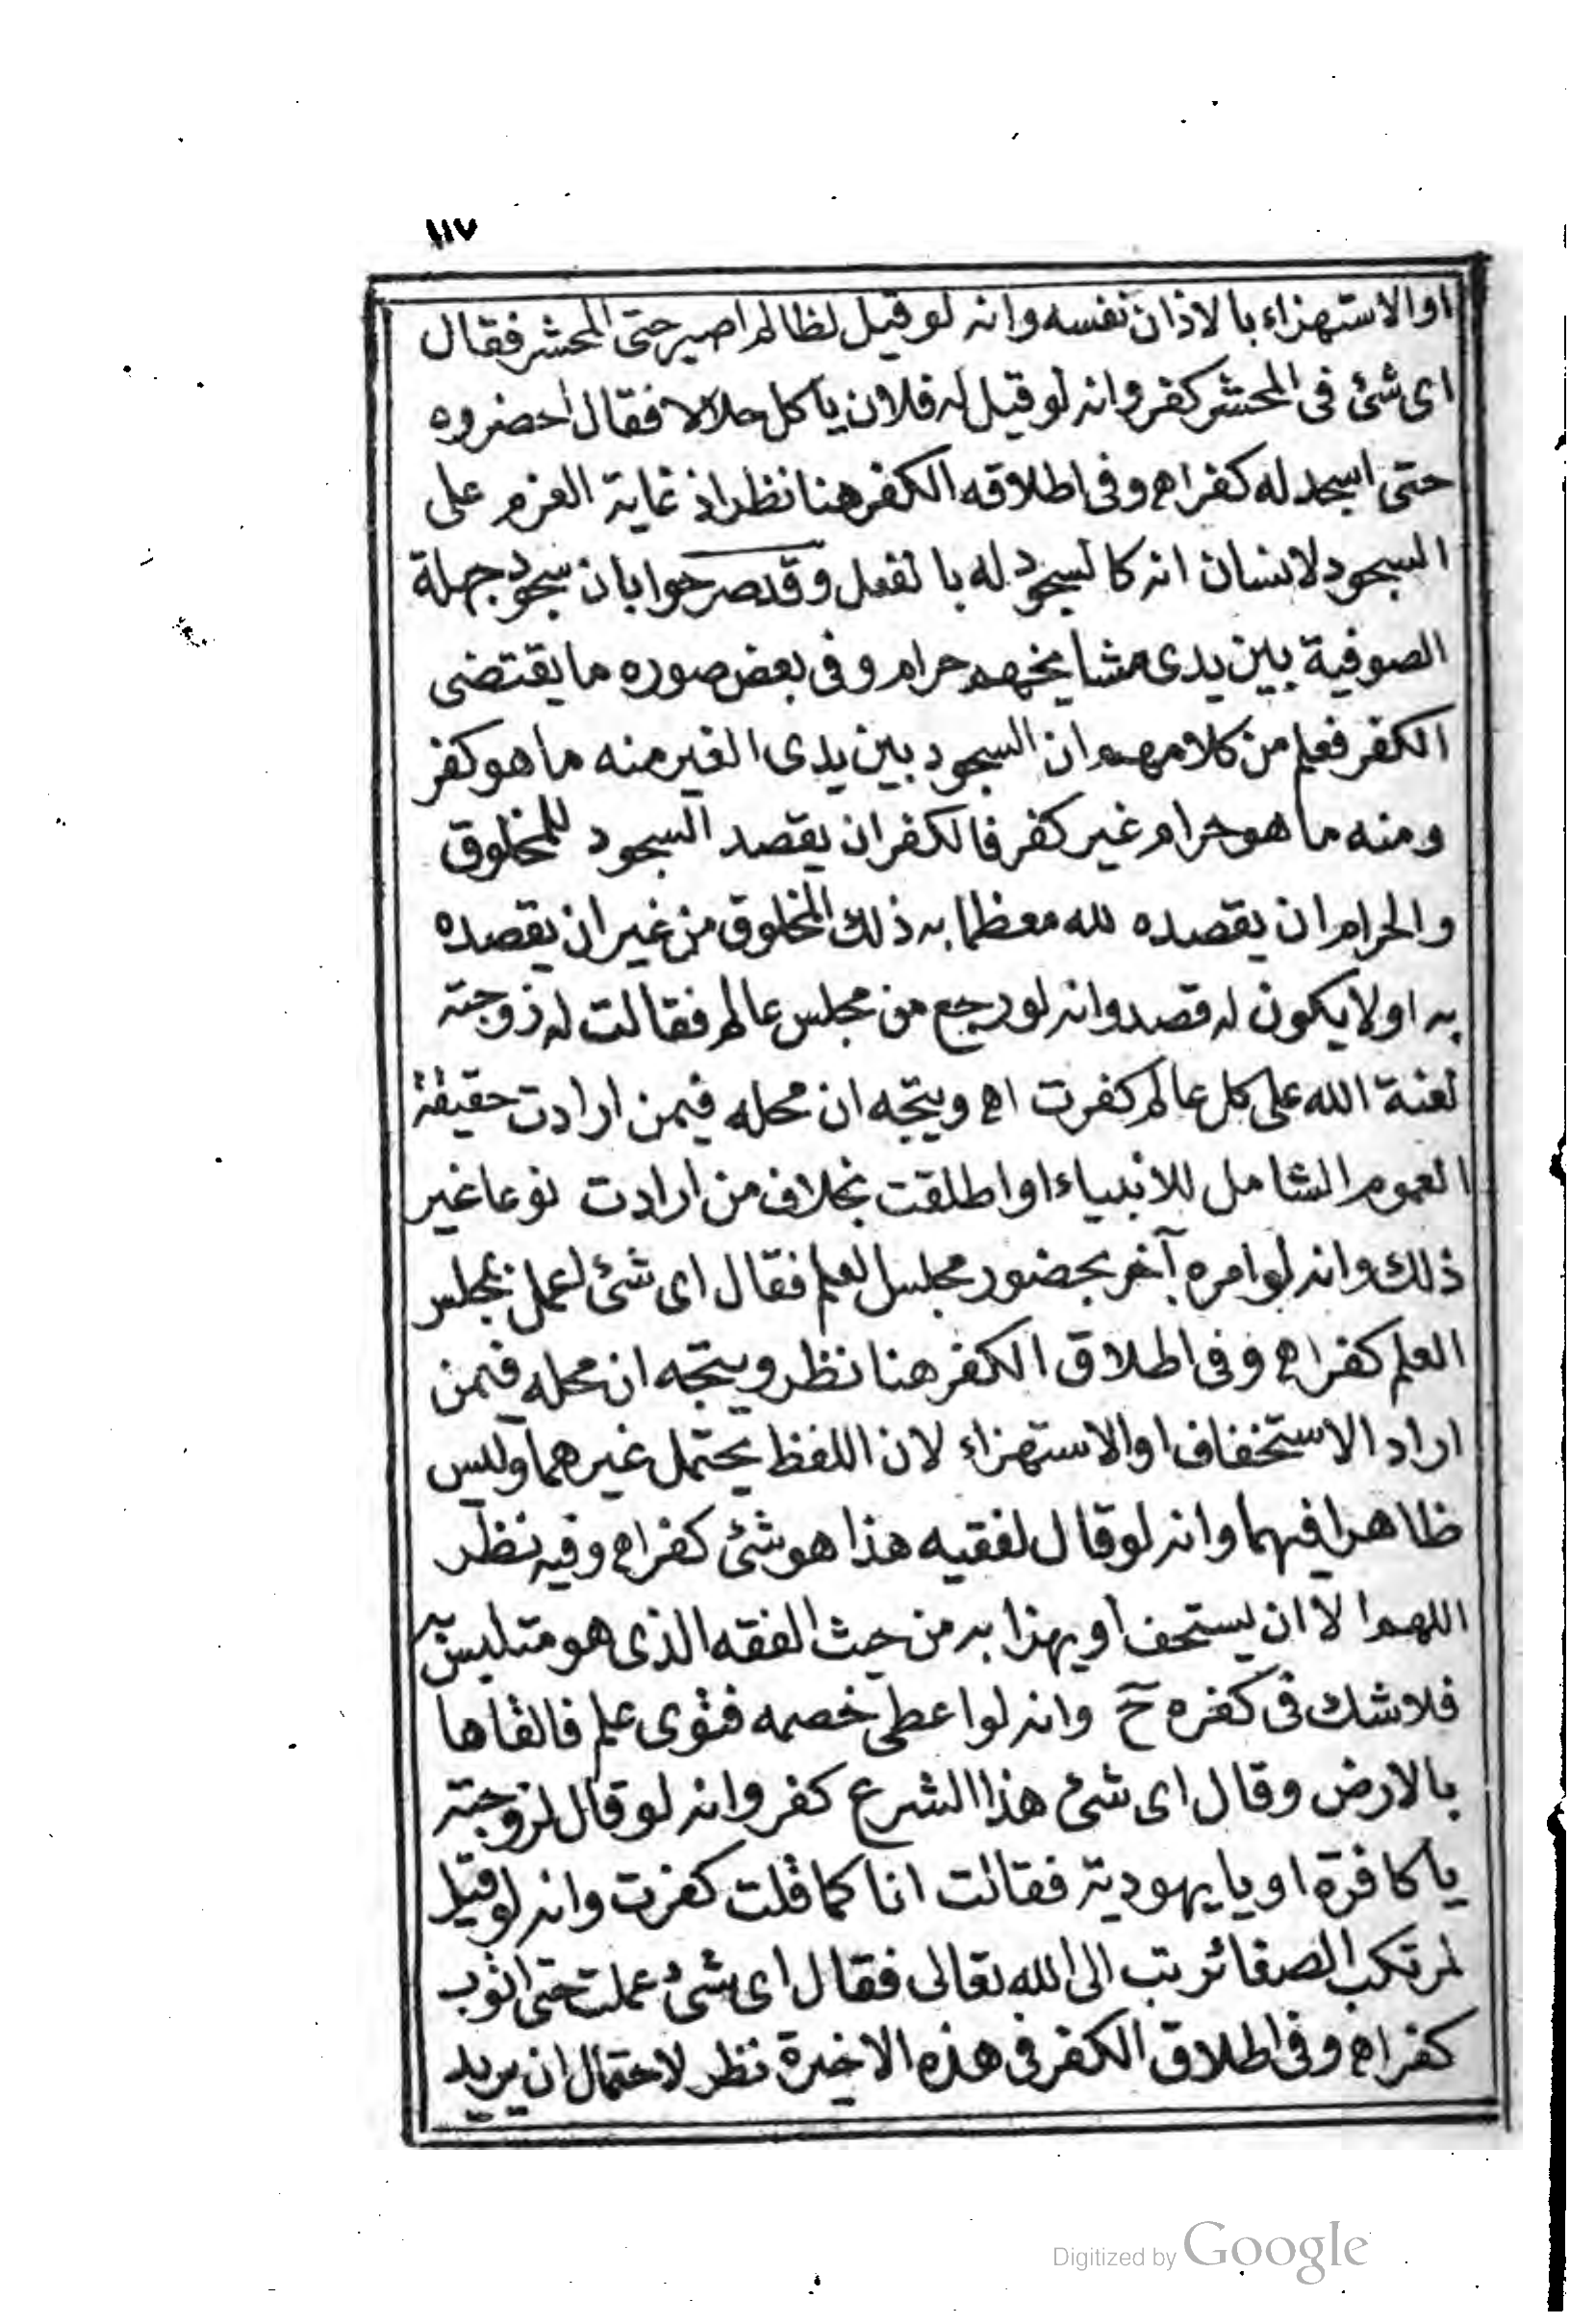 ١١٧
او الاستهزاء بالاذان نفسه وانه لو قيل لظالم اصبر حتى المحشر فقال
اى شئ فى المحشر كفر وانه لو قيل له فلان ياكل حلالا فقال احضروه
حتى اسجد له كفر اه وفى اطلاقه الكفر هنا نظر اذ غاية العزم على
السجود لانسان انه كالسجود له بالفعل وقد صرحوا بان سجود جهلة
الصوفية بين يدى مشايخهم حرام وفى بعض صوره ما يقتضى
الكفر فعلم من كلامهم ان السجود بين يدى الغير منه ما هو كفر
ومنه ما هو حرام غير كفر فالكفر ان يقصد السجود للمخلوق
والحرام ان يقصده لله معظما به ذلك المخلوق من غير ان يقصده
به او لا يكون له قصد وانه لو رجع من مجلس عالم فقالت له زوجته
لعنة الله على كل عالم كفرت اه ويتجه ان محله فيمن ارادت حقيقة
العموم الشامل للانبياء او اطلقت بخلاف من ارادت نوعا غير
ذلك وانه لو امره آخر بحضور مجلس العلم فقال اى شئ اعمل بمجلس
العلم كفر اه وفى اطلاق الكفر هنا نظر ويتجه ان محله فيمن
اراد الاستخفاف او الاستهزاء لان اللفظ يحتمل غيرهما وليس
ظاهرا فيهما وانه لو قال لفقيه هذا هو شئ كفر اه وفيه نظر
اللهم الا ان يستخف او يهزا به من حيث الفقه الذى هو متلبس به
فلا شك فى كفره ح وانه لو اعطى خصمه فتوى علم فالقاها
بالارض وقال اى شئ هذا الشرع كفر وانه لو قال لزوجته
يا كافرة او يا يهودية فقالت انا كما قلت كفرت وانه لو قيل
لمرتكب الصغائر تب الى الله تعالى فقال اى شئ عملت حتى اتوب
كفر اه وفى اطلاق الكفر فى هذه الاخيرة نظر لاحتمال ان يريد
Digitized by Google